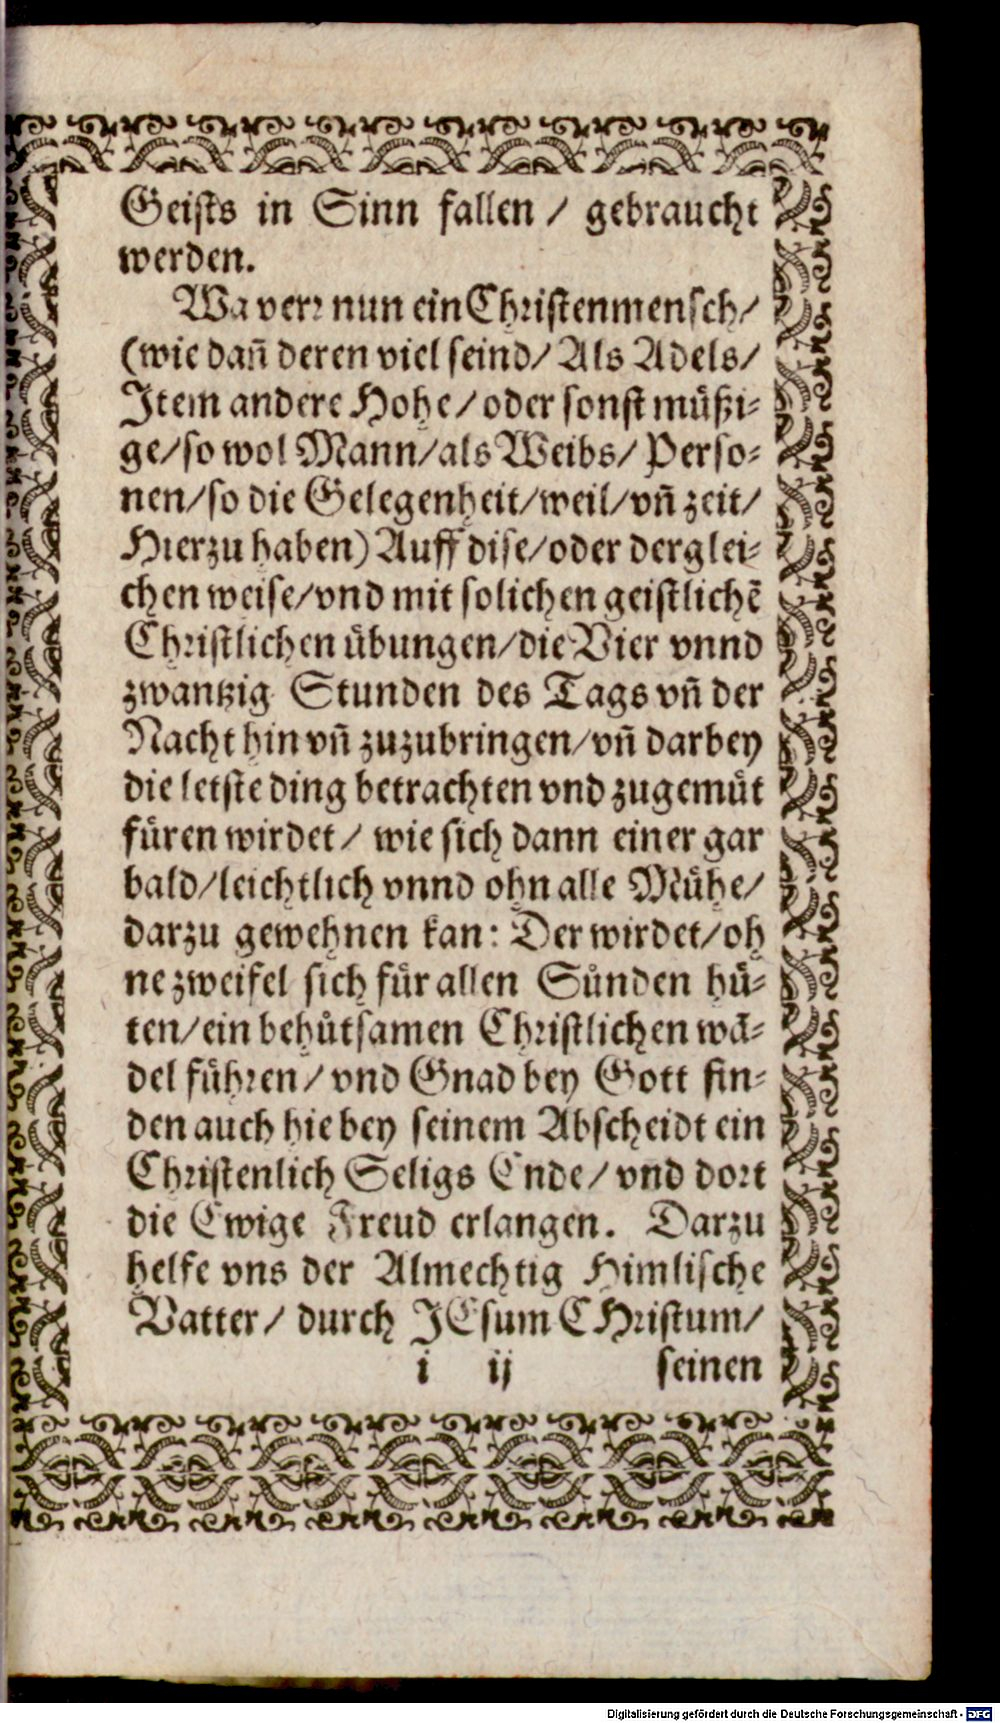 Geists in Sinn fallen / gebraucht
werden.
Wa verr nun ein Christenmensch/
(wie dañ deren viel seind/ Als Adels/
Item andere Hohe/ oder sonst müßi-
ge/so wol Mann/als Weibs/ Perso-
nen/so die Gelegenheit/weil/vñ zeit/
Hierzu haben) Auff dise/oder derglei-
chen weise/vnd mit solichen geistlichẽ
Christlichen übungen/die Vier vnnd
zwantzig Stunden des Tags vñ der
Nacht hin vñ zuzubringen/vñ darbey
die letste ding betrachten vnd zugemüt
füren wirdet/ wie sich dann einer gar
bald/leichtlich vnnd ohn alle Mühe/
darzu gewehnen kan: Der wirdet/oh
ne zweifel sich für allen Sünden hü-
ten/ein behůtsamen Christlichen wā-
del führen/ vnd Gnad bey Gott fin-
den auch hie bey seinem Abscheidt ein
Christenlich Seligs Ende/ vnd dort
die Ewige Freud erlangen. Darzu
helfe vns der Almechtig Himlische
Vatter/ durch JEsum CHristum/
i ij seinen
Digitalisierung gefördert durch die Deutsche Forschungsgemeinschaft - DFG